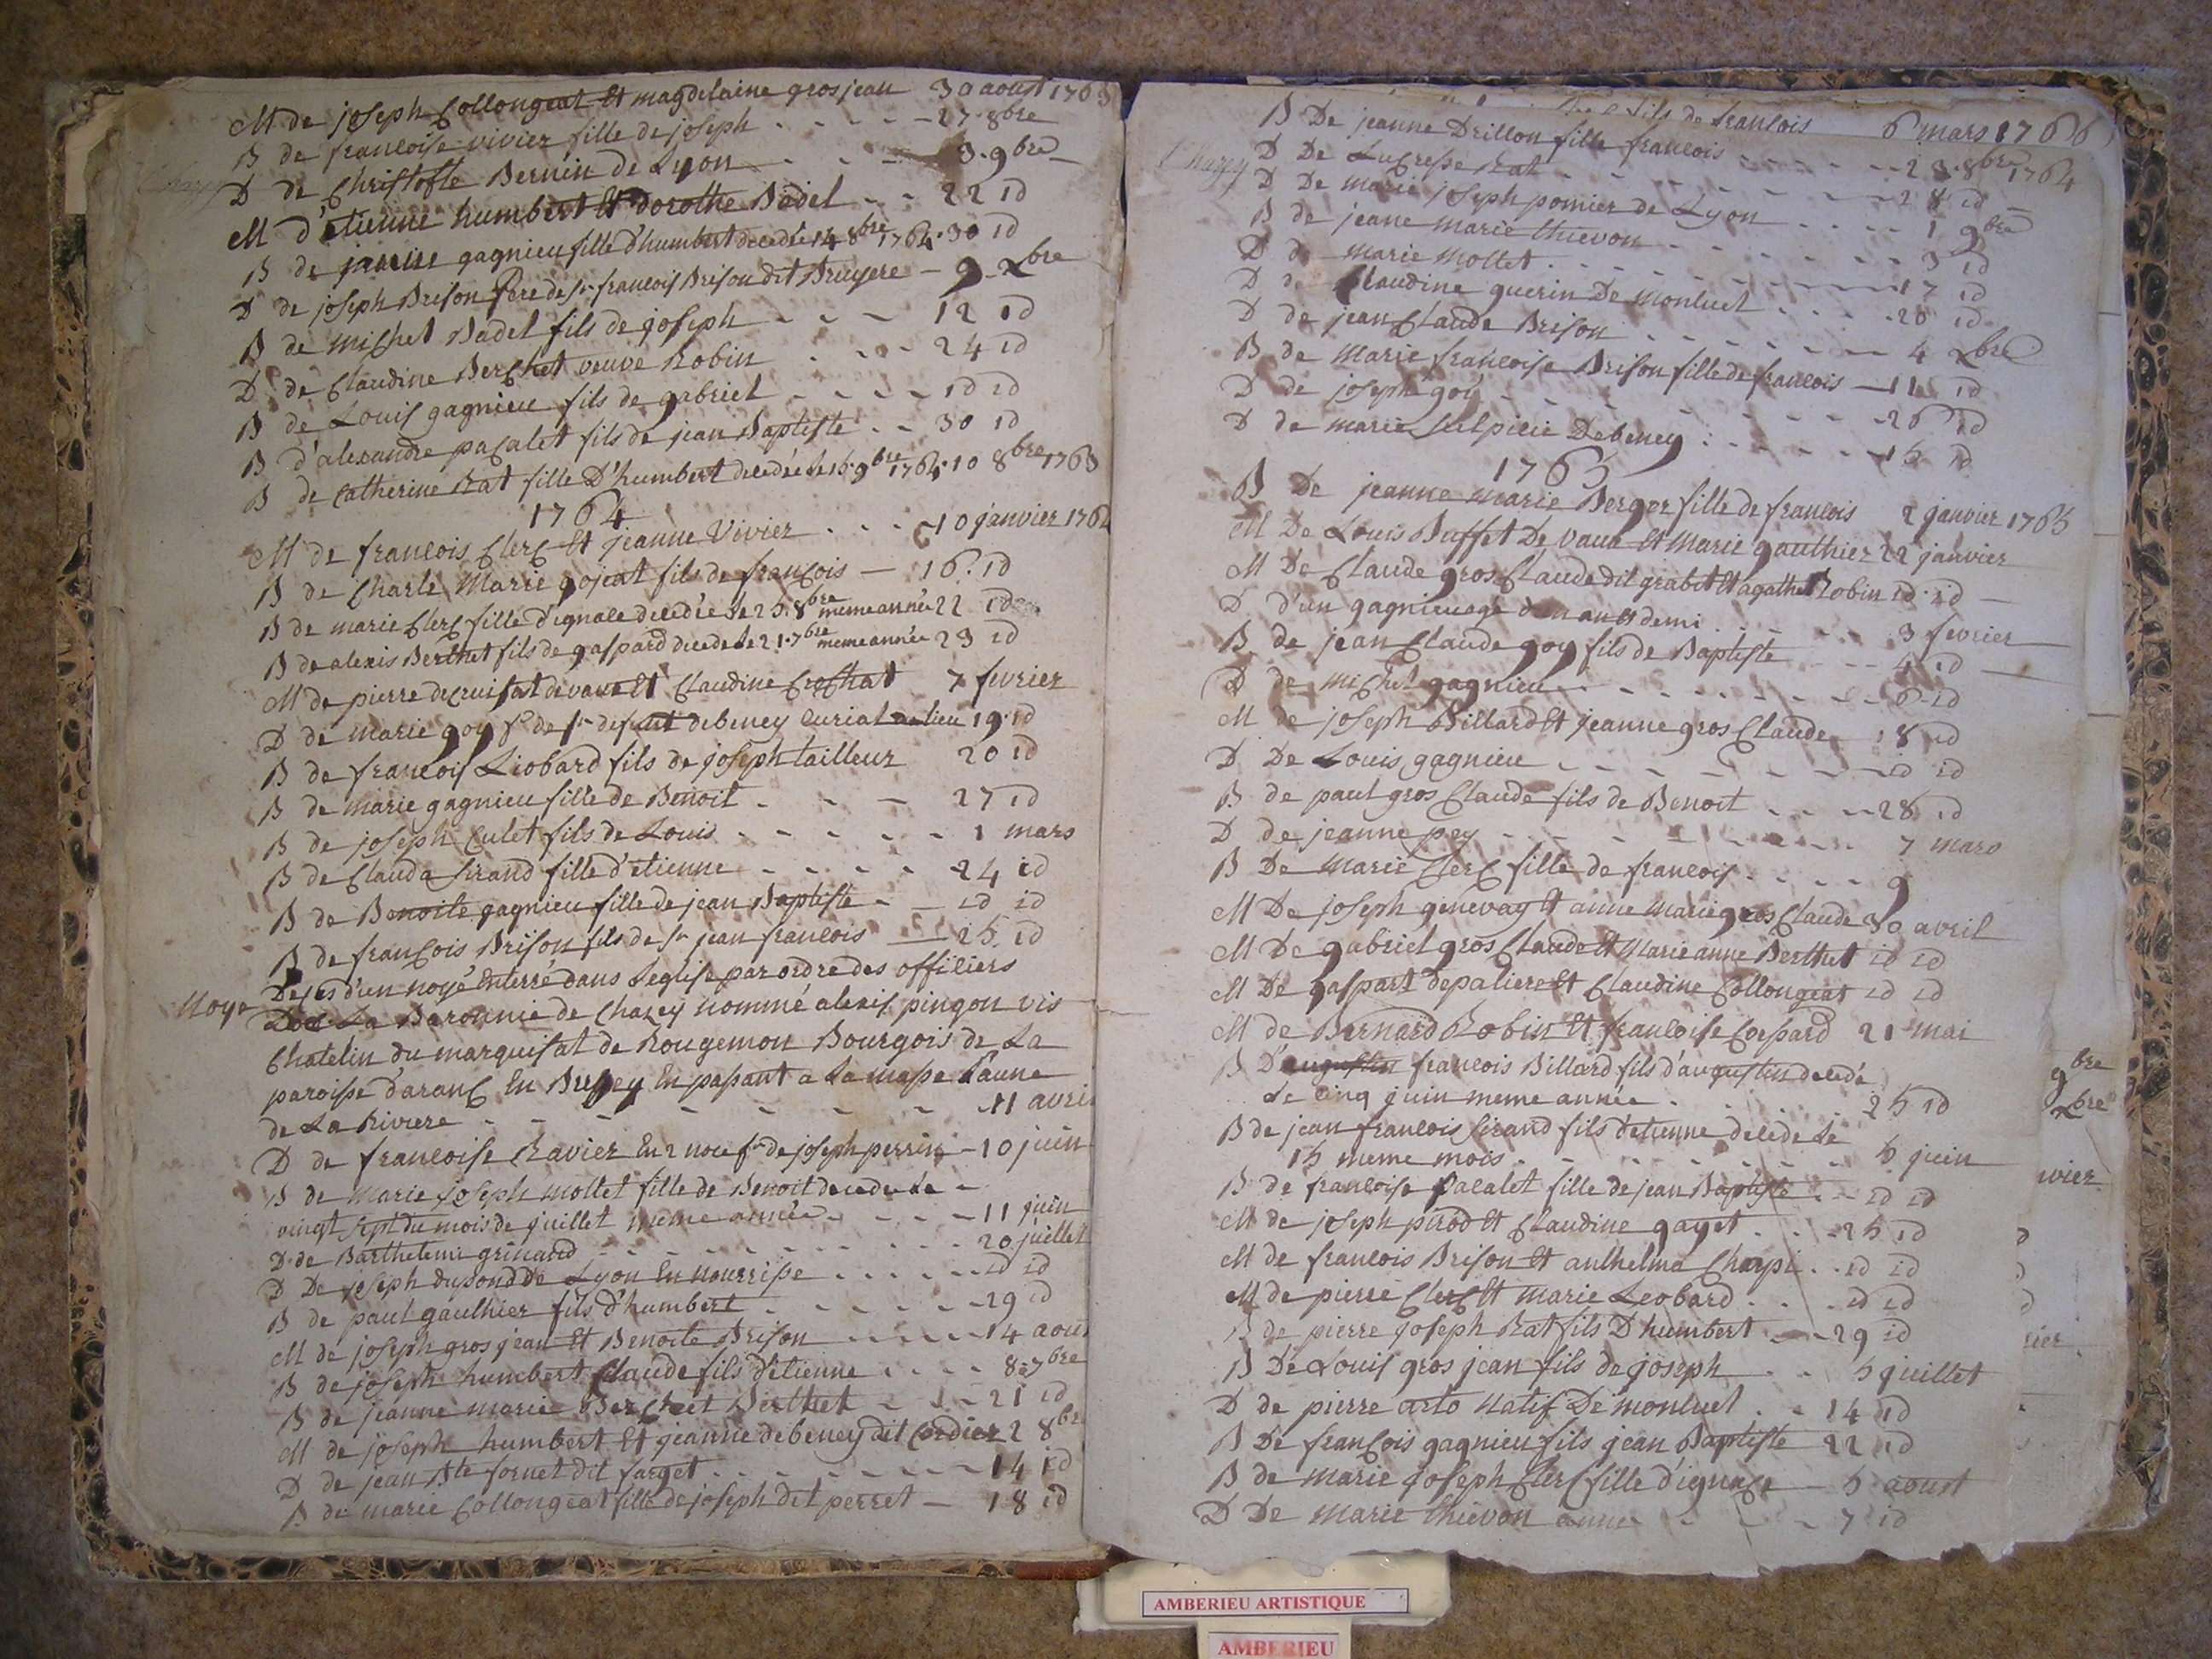 M de joseph Collongeat Et magdelaine grosjean 30 aoust 1763
B de francoise vivier fille de joseph - - - - 27 8bre
D de Christofle Bernin de Lyon - - - 3 9bre
M d'etienne humbert Et dorothe Badel - - 22 id
B de janne gagnieu fille d'humbert decedée 14 8bre 1764 · 30 id
D de joseph Brison Pere de Sr francois Brison dit Bruyere - 9 xbre
B de michel Badel fils de joseph - - - 12 id
D de Claudine Berchet veuve Robin - - - 24 id
B de Louis gagnieu fils de gabriel - - - - id id
B d'alexandre pacalet fils de jean Baptiste - - 30 id
B de Catherine Rat fille D'humbert decedée le 15 9bre 1764 · 10 8bre 1763
1764
M de francois Clerc Et jeanne Vivier - - - 10 janvier 1764
B de Charle Marie gojeat fils de françois - 16 · id
B de marie Clerc fille d'ignace decedée le 25 8bre meme année 22 id
B de alexis Berthet fils de gaspard decede le 21 7bre meme année 23 id
M de pierre decruisat de vaux Et Claudine Crochat 7 fevrier
D de marie goy fe de Sr defunt debeney Curial au lieu 19 · id
B de francois Liobard fils de joseph tailleur 20 id
B de marie gagnieu fille de Benoit - - - 27 id
B de joseph Culet fils de Louis - - - - - 1 mars
B de Clauda Sirand fille d'etienne - - - - - 24 id
B de Benoite gagnieu fille de jean Baptiste - - id id
B de françois Brison fils de Sr jean francois - 25 id
Noye Deces d'un noyé Enterré dans L'eglise par ordre des offisiers
De La Baronnie de Chazey nommé alexis pingon vis
Chatelin du marquisat de Rougemon Bourgois de La
paroisse d'aranc En Bugey En passant a La masse Laune
de La Riviere - - - - - - - 11 avril
D de francoise Ravier fe de joseph perrin - 10 juin
B de marie joseph mollet fille de Benoit decede Le -
vingt sept du mois de juillet meme année - - - - 11 juin
D de Barthelemi grinand - - - - - - - 20 juillet
D De joseph dupond de Lyon En nourrisse - - - - - id id
B de paul gauthier fils d'humbert - - - - - 29 id
M de joseph gros jean Et Benoite Brison - - - - 14 aout
B de joseph humbert Claude fils d'etienne - - - - 8 7bre
B de jeanne marie Berchet Berthet - - - 21 id
M de joseph humbert Et jeanne debeney dit Cordier 2 8bre
D de jean Bte fornet dit farget - - - - - - - 14 id
B de marie Collongeat fille de joseph dit perret - 18 id
fils de francois 6 mars 1766
B De jeanne Drillon fille francois - - - - - 23 8bre 1764
Chazey D De Lucresse Rat - - - - - - - - 28 id
D De marie joseph pomier de Lyon - - - - 1 9bre
B de jeane marie thievon - - - - - - - 3 id
D de marie mollet - - - - - - - - 17 id
D de Claudine guerin De monluel - - - - 20 id
D de jean Claude Brison - - - - - - - 4 xbre
B de Marie francoise Brison fille de francois - 11 id
D de joseph goy - - - - - - - - 26 id
D de marie Sulpicie Debeney - - - - - 15 id
1765
B De jeanne marie Berger fille de francois 2 janvier 1765
M De Louis Buffet De vaux Et Marie gauthier 22 janvier
M De Claude gros Claude dit grabit Et agathe Robin id · id -
D d'un gagnieu agé d'un an et demi - - - - 3 fevrier
B de jean Claude goy fils de Baptiste - - - 4 id -
D de michel gagnieu - - - - - - - - 6 id
M de joseph Billard Et jeanne gros Claude 18 id
D De Louis gagnieu - - - - - - - id id
B de paul gros Claude fils de Benoit - - - 28 id
D de jeanne pey - - - - - - - - 7 mars
B De marie Clerc fille de francois - - - - 9
M De joseph genevay Et anne Marie gros Claude 30 avril
M De gabriel gros Claude Et Marie anne Berthet id id
M De gaspart depaliere Et Claudine Collongeat id id
M de Bernard Robin Et francoise Corpard 21 mai
B D'augustin francois Billard fils d'augustin decedé
Le Cinq juin meme année - - - - - 25 id
B de jean francois Sirand fils d'etienne decede Le
15 meme mois - - - - - - - - 5 juin
B de francoise Pacalet fille de jean Baptiste - - id id
M de joseph pirod Et Claudine gayet - - - 25 id
M de francois Brison Et anthelma Charpi - - id id
M de pierre Clerc Et marie Leobard - - - id id
B de pierre joseph Rat fils D'humbert - - 29 id
B De Louis gros jean fils de joseph - - 5 juillet
D de pierre arto natif De monluel - - 14 id
B De françois gagnieu fils jean Baptiste 22 id
B de marie joseph Clerc fille d'ignace - 5 aoust
D De marie thievon anne - - - 7 id
9bre
xbre
vier
AMBERIEU ARTISTIQUE
AMBERIEU